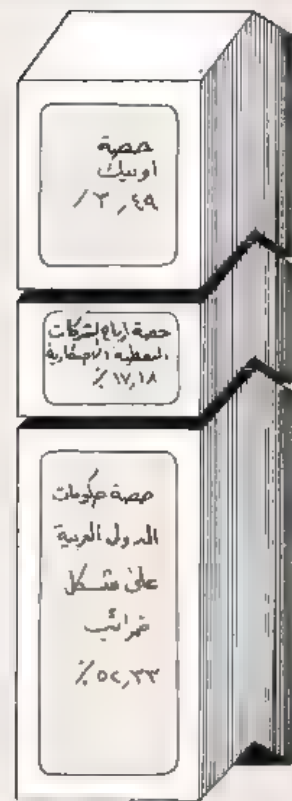 حصة
اوبيك
٣٠,٤٩ /
حصة ارباح الشركات
النفطية الاحتكارية
١٧,١٨ ٪
حصة حكومات
الدول الغربية
على شكل
ضرائب
٥٢,٣٣ ٪